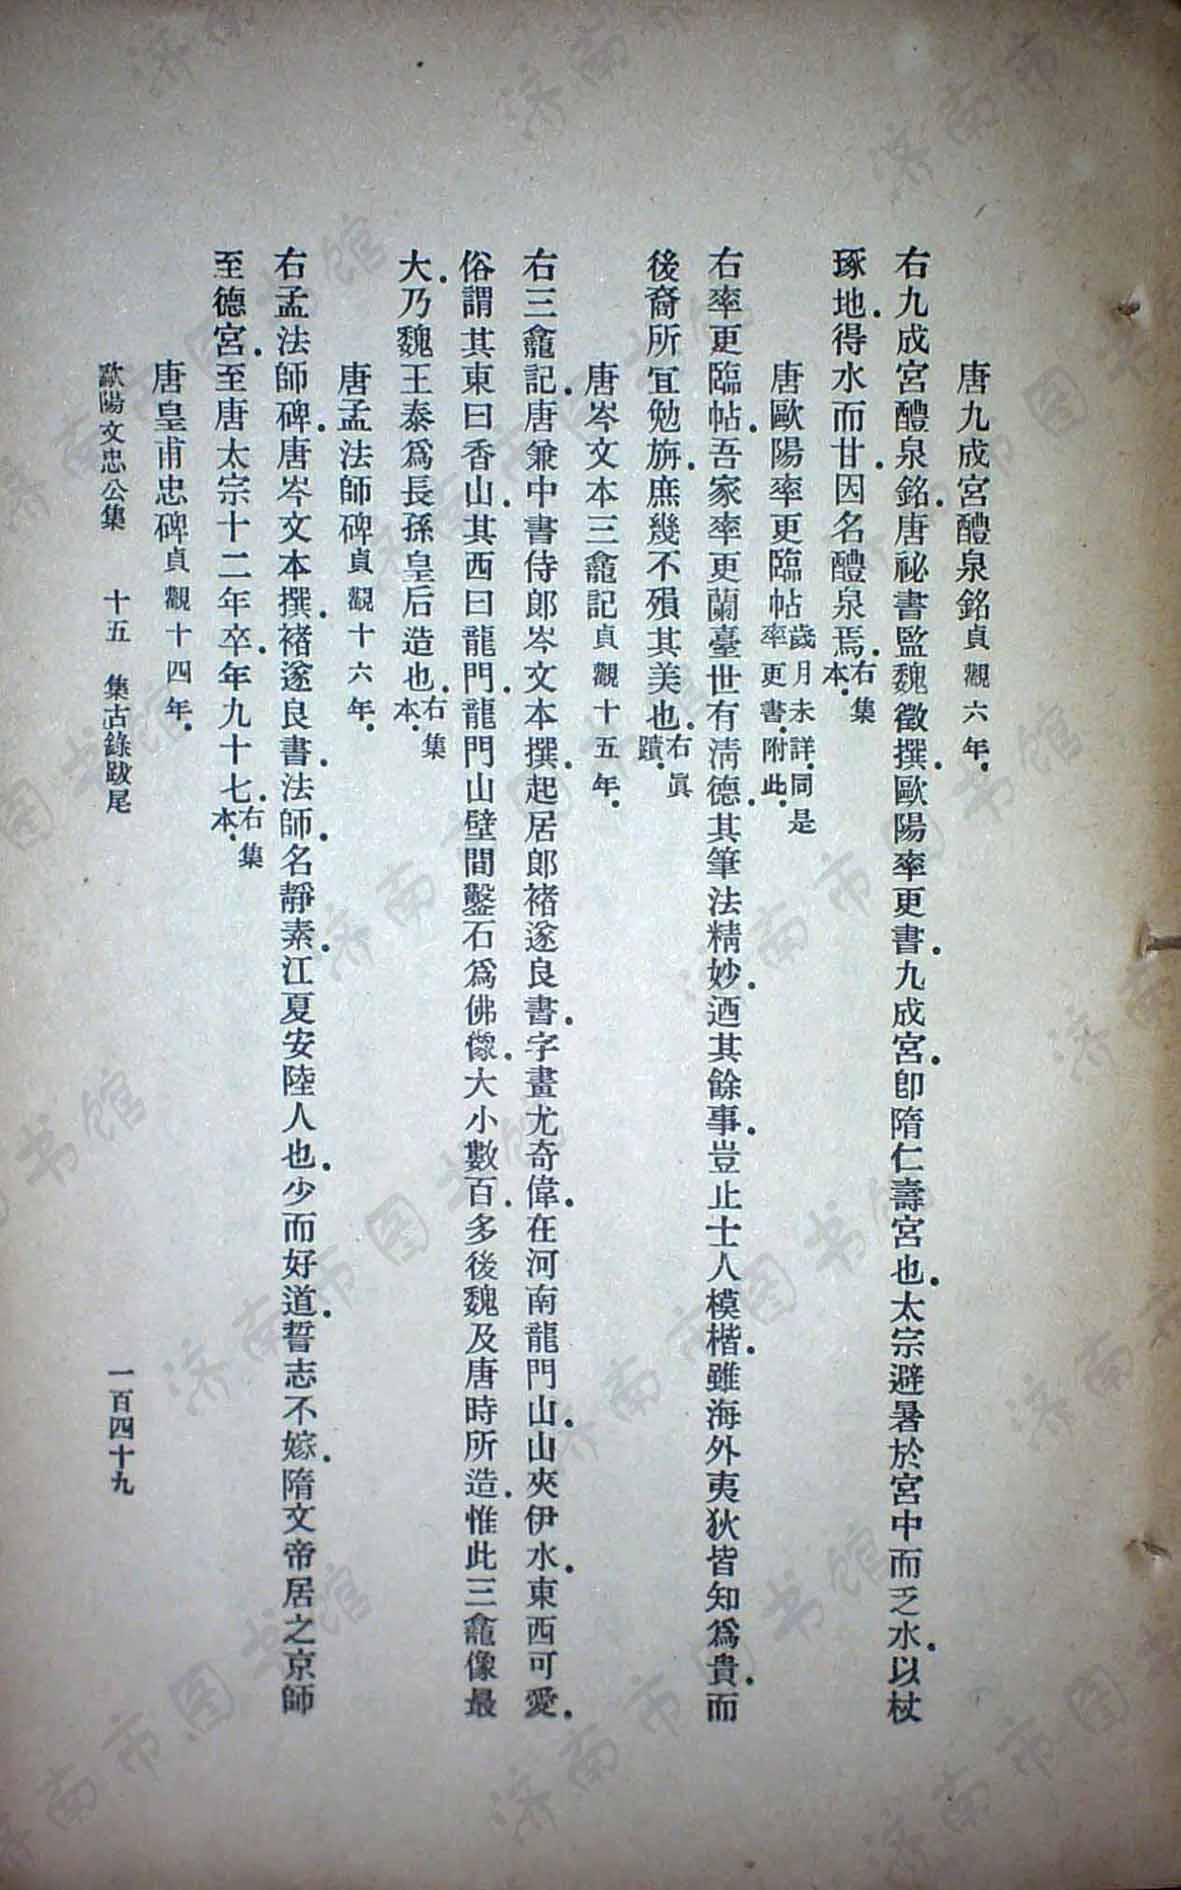 唐九成宮醴泉銘貞觀六年.
右九成宮醴泉銘.唐祕書監魏徵撰.歐陽率更書.九成宮.卽隋仁壽宮也.太宗避暑於宮中而乏水.以杖
琢地.得水而甘.因名醴泉焉.右集本.
唐歐陽率更臨帖歲月未詳.同是率更書.附此.
右率更臨帖.吾家率更蘭臺世有淸德.其筆法精妙.迺其餘事.豈止士人模楷.雖海外夷狄皆知爲貴.而
後裔所宜勉旃.庶幾不殞其美也.右眞蹟.
唐岑文本三龕記貞觀十五年.
右三龕記.唐兼中書侍郞岑文本撰.起居郞褚遂良書.字畫尤奇偉.在河南龍門山.山夾伊水.東西可愛.
俗謂其東曰香山.其西曰龍門.龍門山壁間鑿石爲佛像.大小數百.多後魏及唐時所造.惟此三龕像最
大.乃魏王泰爲長孫皇后造也.右集本.
唐孟法師碑貞觀十六年.
右孟法師碑.唐岑文本撰.褚遂良書.法師.名靜素.江夏安陸人也.少而好道.誓志不嫁.隋文帝居之京師
至德宮.至唐太宗十二年卒.年九十七.右集本.
唐皇甫忠碑貞觀十四年.
歐陽文忠公集 十五 集古錄跋尾 一百四十九
济南市图书馆